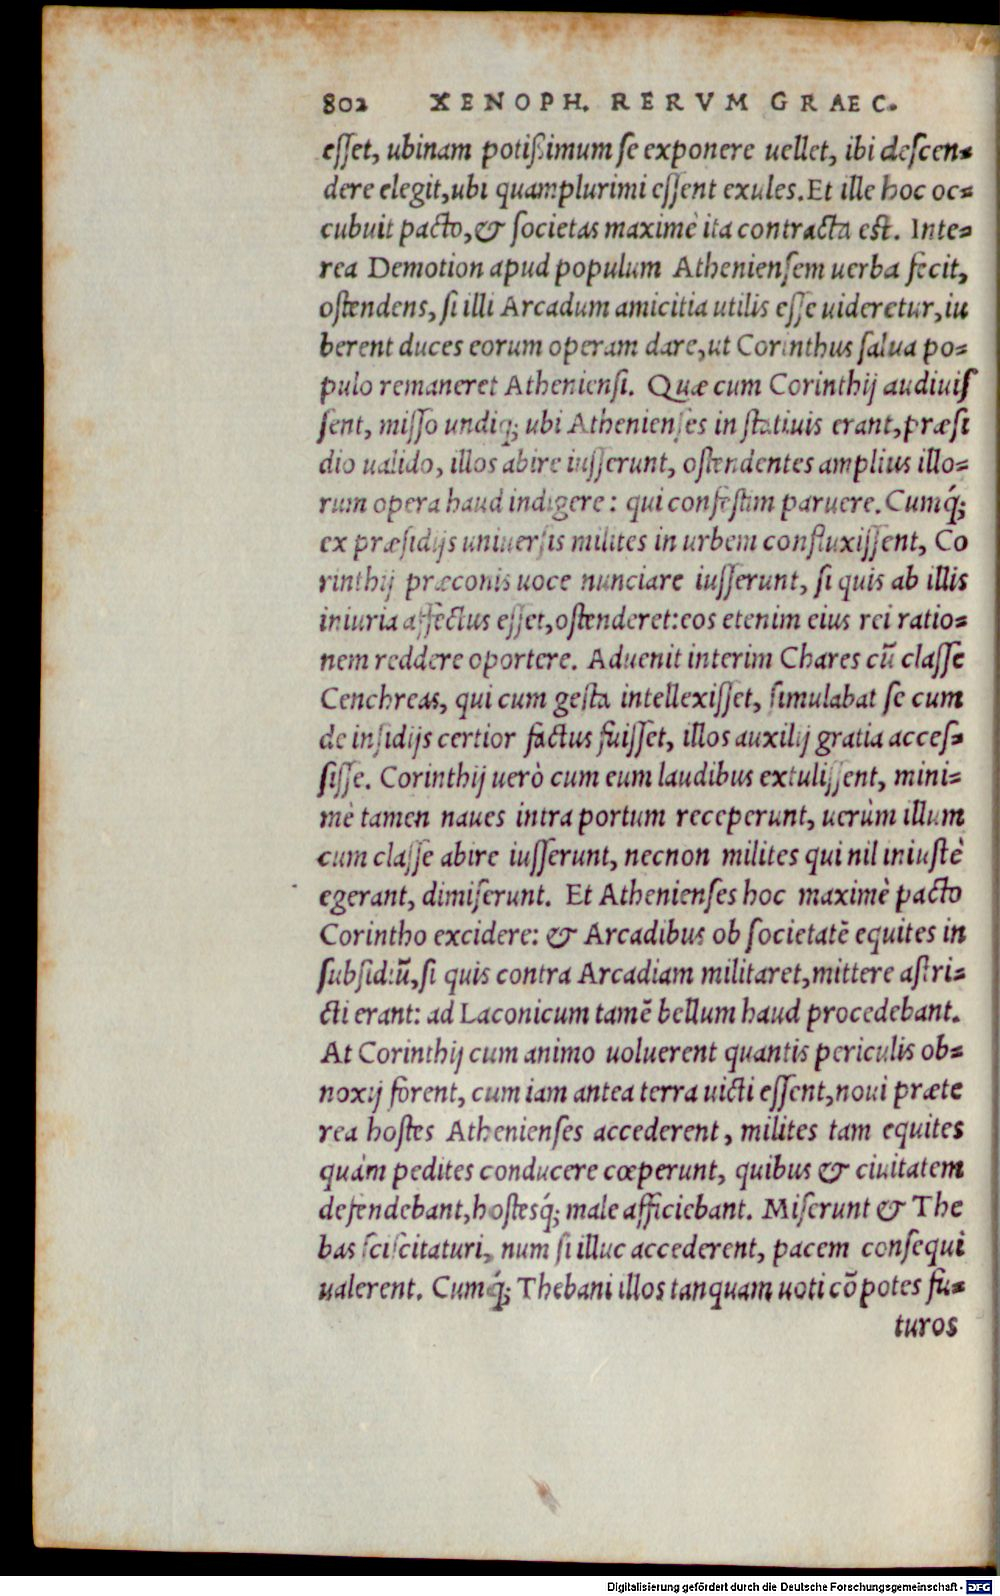 802 XENOPH. RERVM GRAEC.
esset, ubinam potißimum se exponere uellet, ibi descen-
dere elegit, ubi quamplurimi essent exules. Et ille hoc oc-
cubuit pacto, & societas maximè ita contracta est. Inte-
rea Demotion apud populum Atheniensem uerba fecit,
ostendens, si illi Arcadum amicitia utilis esse uideretur, iu
berent duces eorum operam dare, ut Corinthus salua po-
pulo remaneret Atheniensi. Quæ cum Corinthij audiuis
sent, misso undiq; ubi Athenienses in statiuis erant, præsi
dio ualido, illos abire iusserunt, ostendentes amplius illo-
rum opera haud indigere: qui confestim paruere. Cumq́;
ex præsidijs uniuersis milites in urbem confluxissent, Co
rinthij præconis uoce nunciare iusserunt, si quis ab illis
iniuria affectus esset, ostenderet: eos etenim eius rei ratio-
nem reddere oportere. Aduenit interim Chares cū classe
Cenchreas, qui cum gesta intellexisset, simulabat se cum
de insidijs certior factus fuisset, illos auxilij gratia acces-
sisse. Corinthij uerò cum eum laudibus extulissent, mini-
mè tamen naues intra portum receperunt, uerùm illum
cum classe abire iusserunt, necnon milites qui nil iniustè
egerant, dimiserunt. Et Athenienses hoc maximè pacto
Corintho excidere: & Arcadibus ob societatē equites in
subsidiū, si quis contra Arcadiam militaret, mittere astri-
cti erant: ad Laconicum tamē bellum haud procedebant.
At Corinthij cum animo uoluerent quantis periculis ob-
noxij forent, cum iam antea terra uicti essent, noui præte
rea hostes Athenienses accederent, milites tam equites
quàm pedites conducere cœperunt, quibus & ciuitatem
defendebant, hostesq́; male afficiebant. Miserunt & The
bas sciscitaturi, num si illuc accederent, pacem consequi
ualerent. Cumq́; Thebani illos tanquam uoti cōpotes fu-
turos
Digitalisierung gefördert durch die Deutsche Forschungsgemeinschaft - DFG